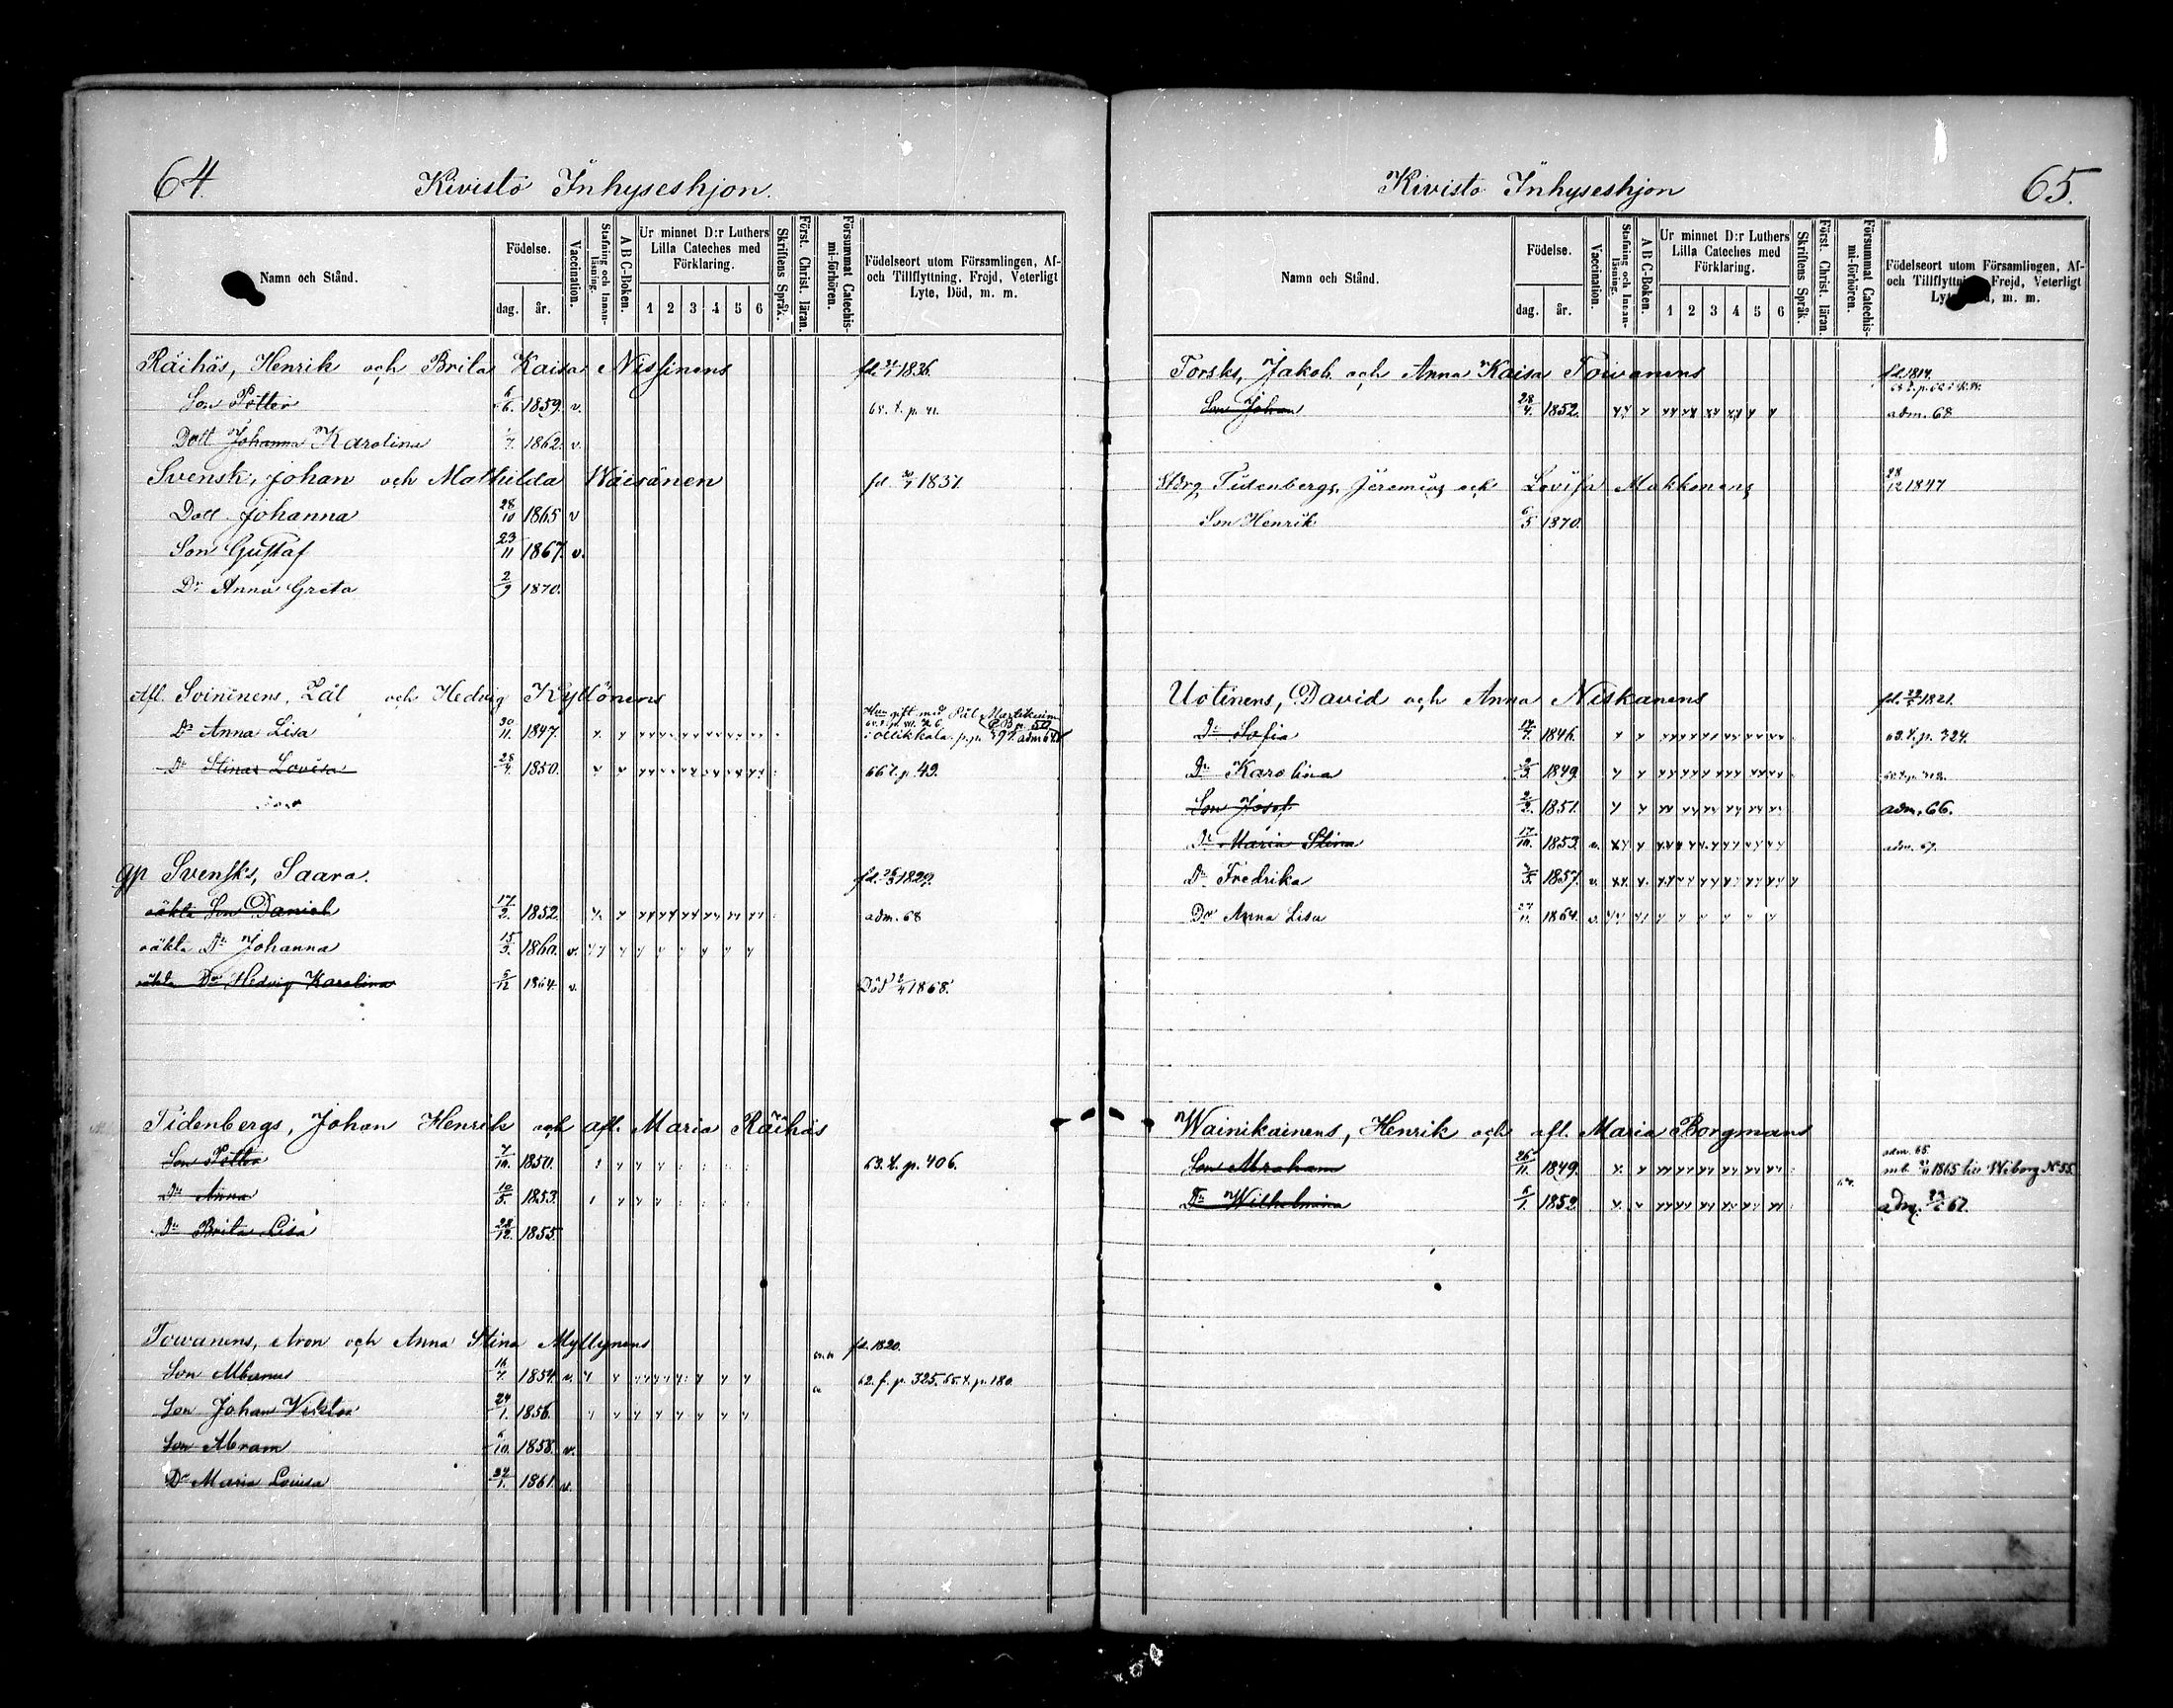 64.
Kivistö Inhyseshjon.
Namn och Stånd.
Födelse.
dag.
år.
Vaccination.
Stafning och Innanläsning.
A B C-Boken.
Ur minnet D:r Luthers Lilla Cateches med Förklaring.
1 2 3 4 5 6
Skriftens Språk.
Först. Christ. läran.
Försummat Catechismi-förhören.
Födelseort utom Församlingen, Af- och Tillflyttning, Frejd, Veterligt Lyte, Död, m. m.
Räihäs, Henrik och Brita Kaisa Nissinens 1836.
Son Petter 6/6. 1859. v.
Dott Johanna Karolina 1862. v.
Svensk, Johan och Mathilda Wäisänen
Dott Johanna 28/10 1865 v
Son Gustaf 23/11 1867. v.
Dr Anna Greta 2/9 1870.
Afl. Soininens, Pål och Hedvig Kyllönens
Dr Anna Lisa 30/11. 1847.
Dr Stina Lovisa 28/4. 1850. 66 f. p. 49.
gp Svensks, Saara. fd. 1829.
oäkta Son Daniel 17/2. 1852. adm. 68
oäkta Dr Johanna 15/3. 1860. v.
oäkta Dr Hedvig Karolina 5/12 1864. v. Död 1868.
Tidenbergs, Johan Henrik och afl. Maria Räihäs
Son Petter 7/10. 1850. 63. f. p. 406.
Dr Anna 10/3. 1853.
Dr Brita Lisa 28/12. 1855.
Towanens, Aron och Anna Stina Myllynens fd. 1820.
Son Albinus 16/7. 1854. v. 62. f. p. 325. 65. f. p. 180.
Son Johan Viktor 24/1. 1856.
Son Abram 6/10. 1858. v.
Dr Maria Lovisa 24/1. 1861. v.
Kivistö Inhyseshjon
65.
Namn och Stånd.
Födelse.
dag.
år.
Vaccination.
Stafning och Innanläsning.
A B C-Boken.
Ur minnet D:r Luthers Lilla Cateches med Förklaring.
1 2 3 4 5 6
Skriftens Språk.
Först. Christ. läran.
Försummat Catechismi-förhören.
Födelseort utom Församlingen, Af- och Tillflyttning, Frejd, Veterligt m. m.
Torsks, Jakob och Anna Kaisa Towanens fd. 1814.
Son Johan 28/4. 1852. adm. 68
Tidenbergs, Jeremias och Lovisa Makkonens 28/12 1847
Son Henrik 1870.
Uotinens, David och Anna Niskanens 1821.
Dr Sofia 1846. 63. f. p. 324.
Dr Karolina 1849.
Son Josef 2/2. 1851. adm. 66.
Dr Maria Stina 17/10. 1853. v. adm. 67.
Dr Fredrika 1857. v.
Dr Anna Lisa 27/11. 1864. v.
Wainikainens, Henrik och afl. Maria Borgmans
Son Abraham 26/11. 1849. adm. 65. 1865 till Wiborg N 55.
Dr Wilhelmina 6/1. 1852. adm. 67.